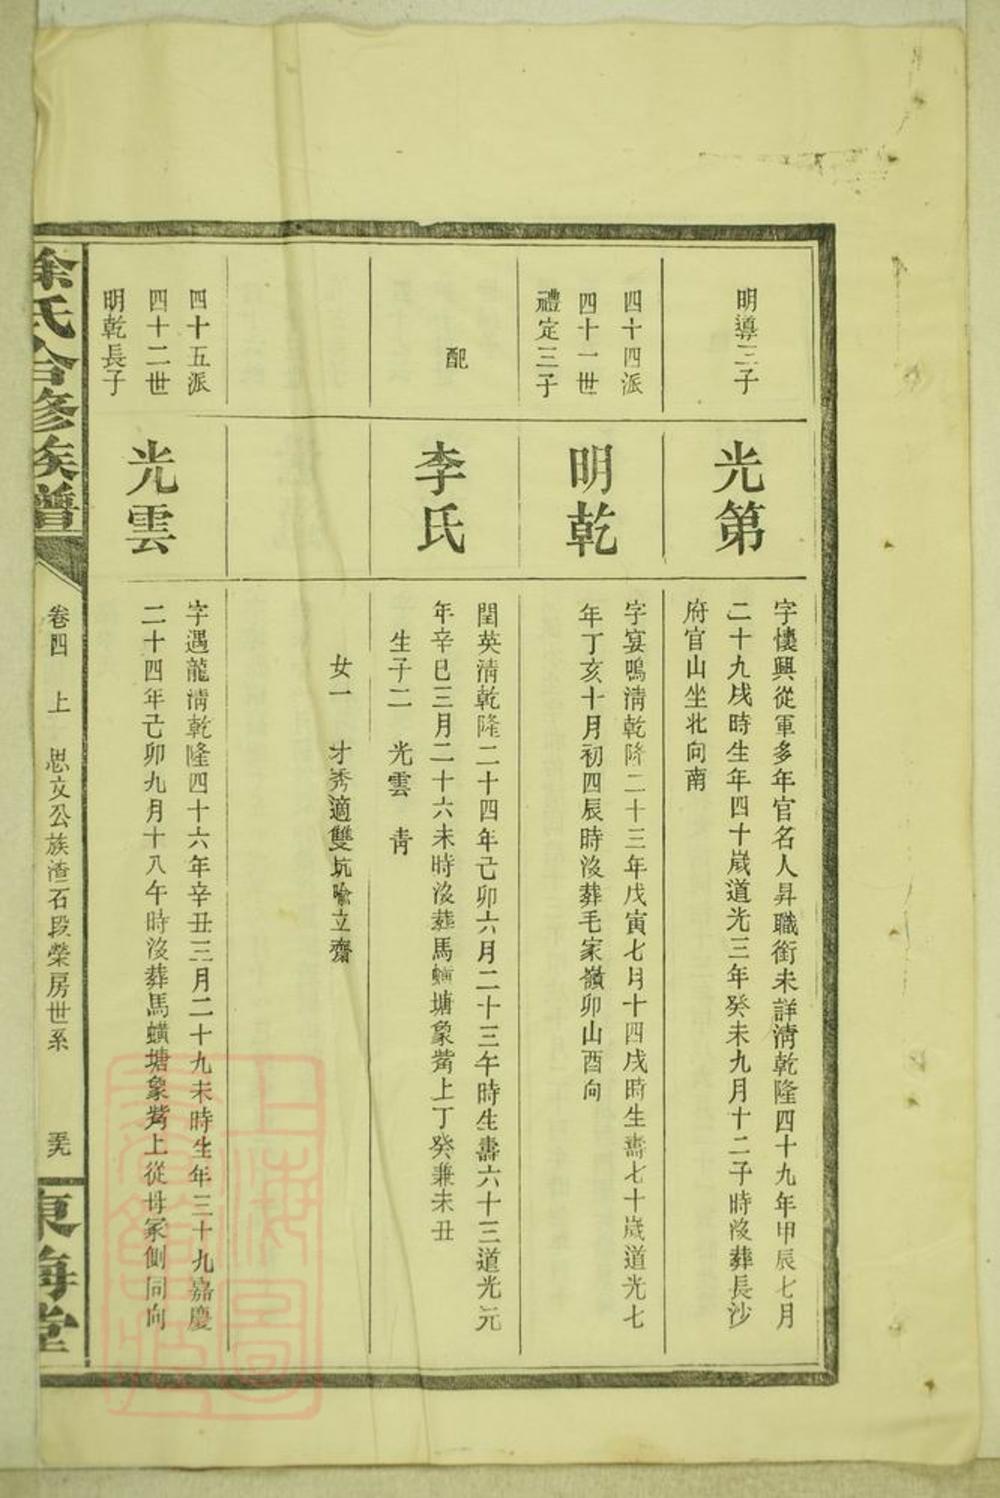 明導三子
光第
字懷興從軍多年官名人昇職銜未詳淸乾隆四十九年甲辰七月
二十九戌時生年四十歲道光三年癸未九月十二子時沒葬長沙
府官山坐北向南
四十四派
四十一世
禮定三子
明乾
字宴鳴淸乾隆二十三年戊寅七月十四戌時生壽七十歲道光七
年丁亥十月初四辰時沒葬毛家嶺卯山酉向
配
李氏
閏英淸乾隆二十四年己卯六月二十三午時生壽六十三道光元
年辛巳三月二十六未時沒葬馬蟥塘象觜上丁癸兼未丑
生子二 光雲 靑
女一 才秀適雙坑喩立齋
四十五派
四十二世
明乾長子
光雲
字遇龍淸乾隆四十六年辛丑三月二十九未時生年三十九嘉慶
二十四年己卯九月十八午時沒葬馬蟥塘象觜上從母冢側同向
徐氏合修族譜
卷四 上 思文公族渣石段榮房世系
東海堂
上海圖